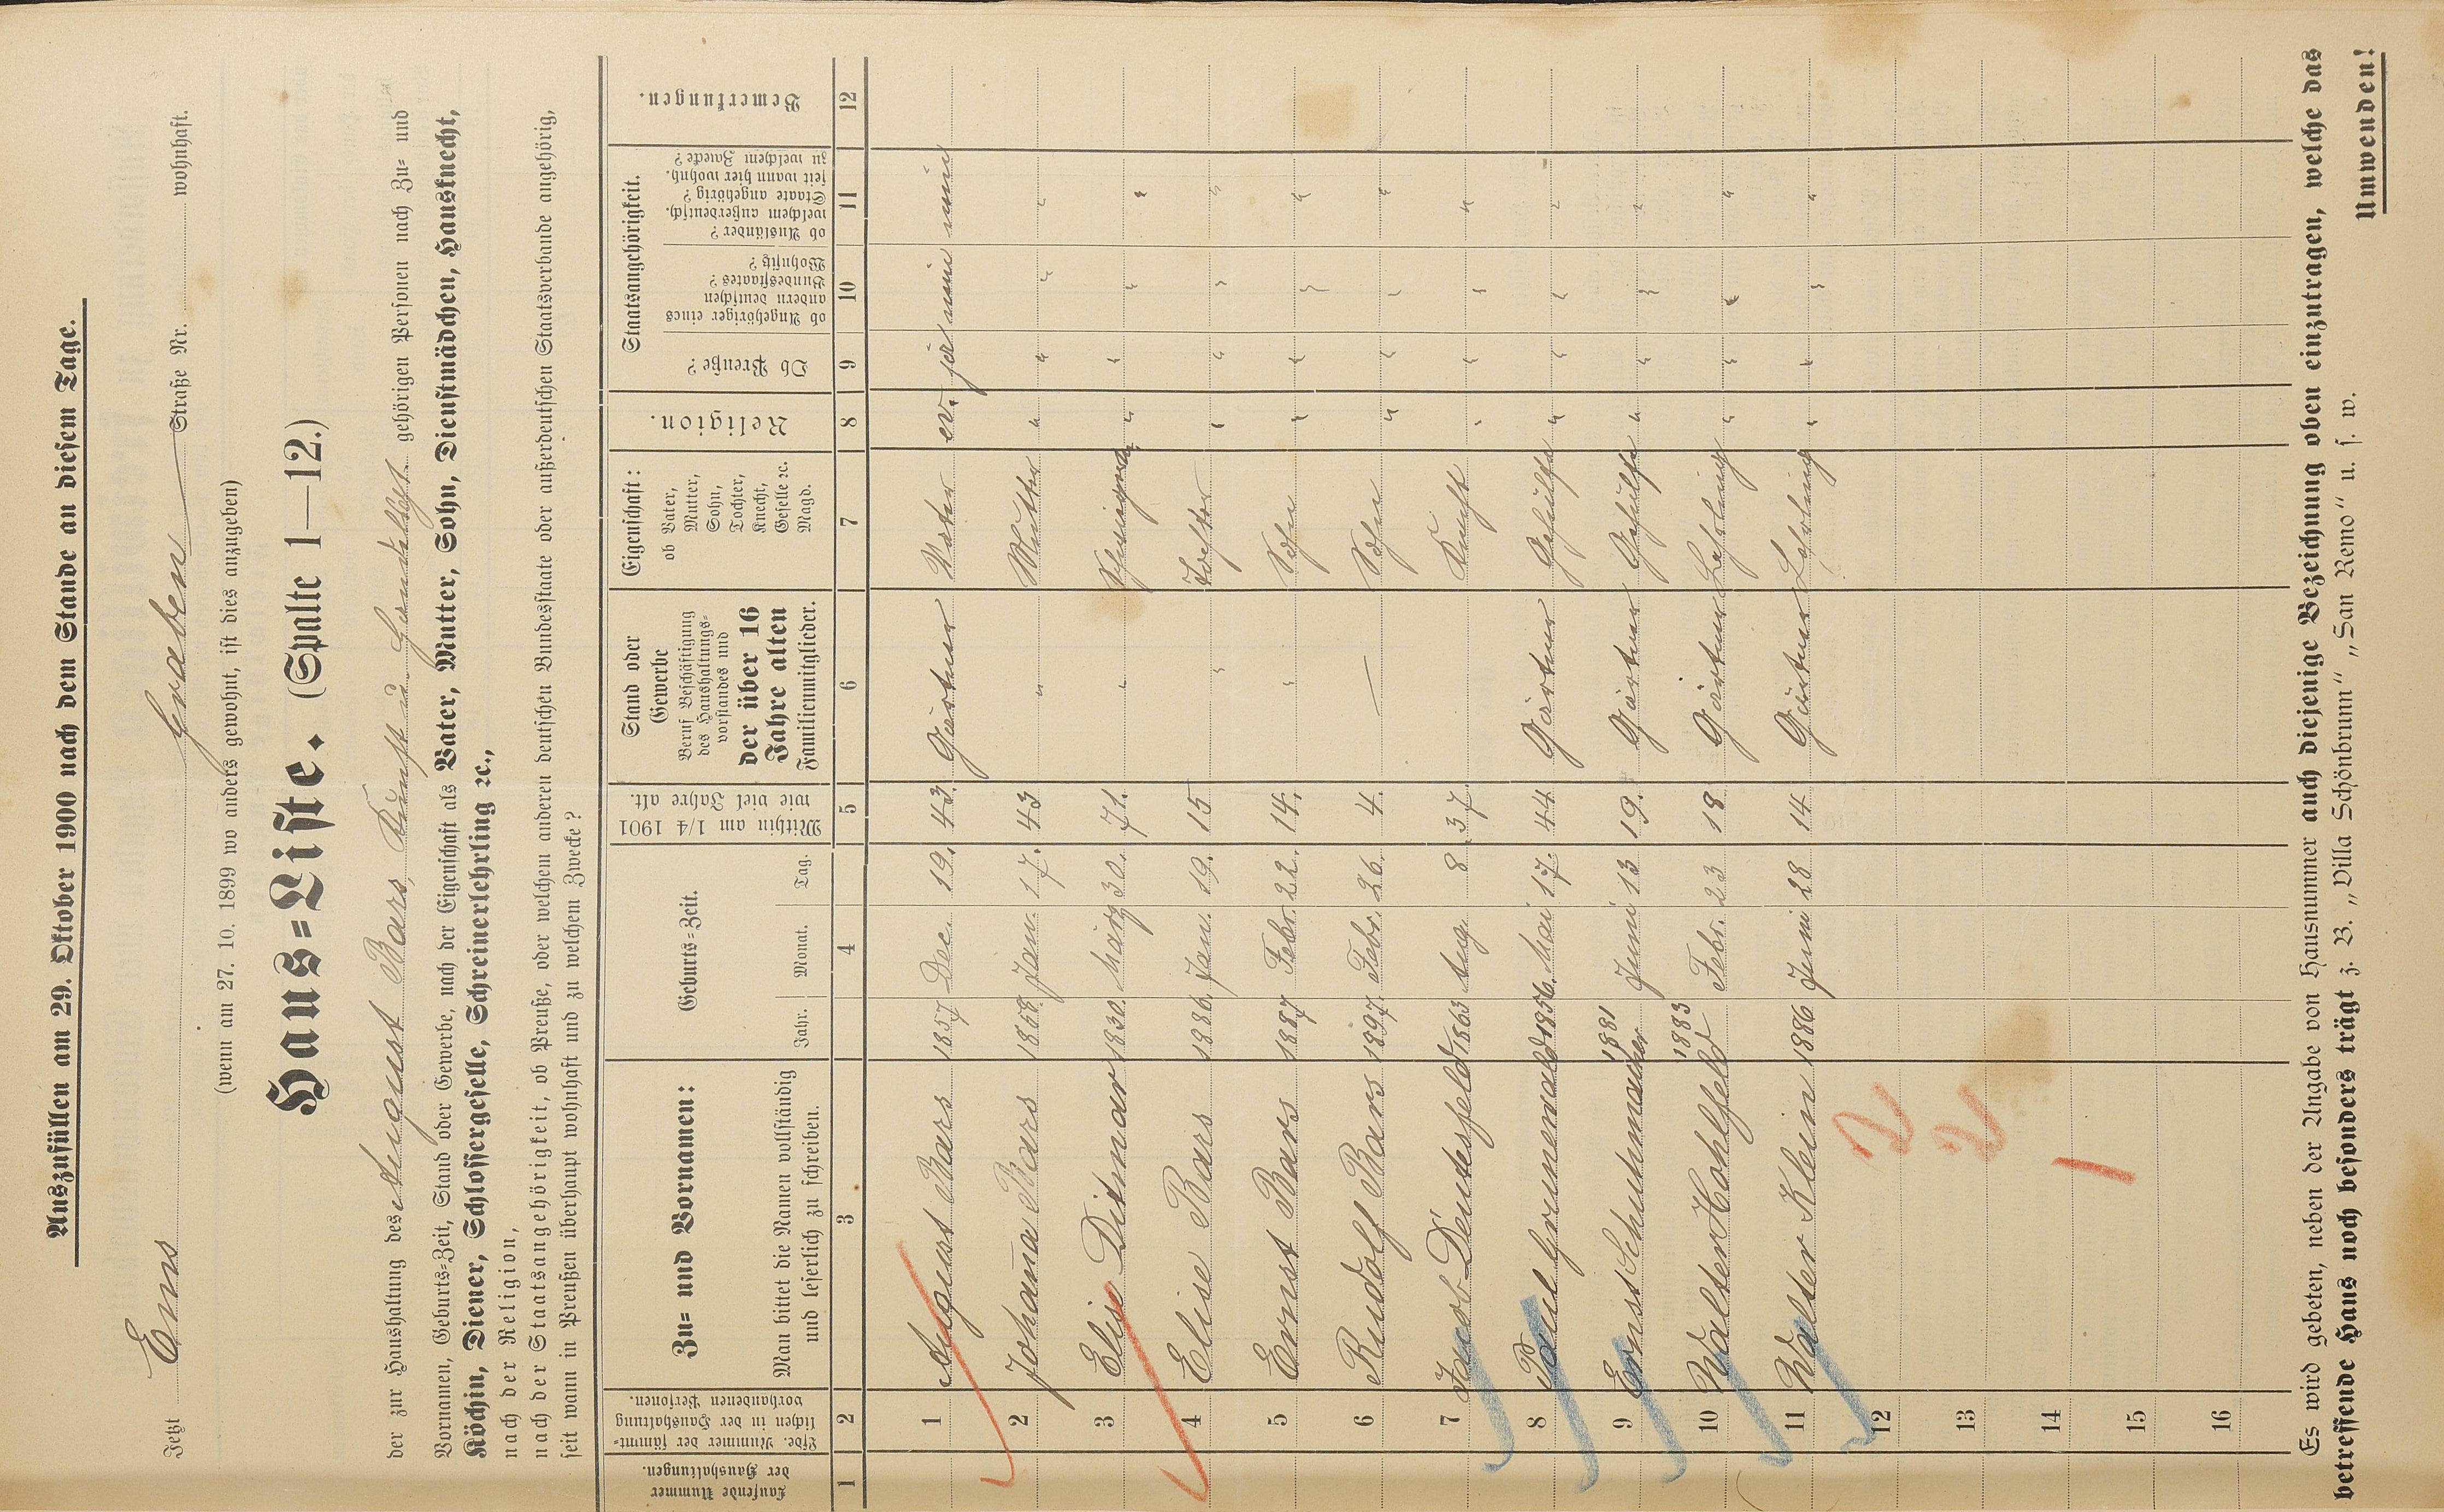 Auszufüllen am 29. Oktober 1900 nach dem Stande an diesem Tage.
Jetzt Ems Graben Straße Nr. wohnhaft.
(wenn am 27. 10. 1899 wo anders gewohnt, ist dies anzugeben)
Haus=Liste. (Spalte 1—12.)
der zur Haushaltung des August Bars, Kunst u. Handelsgt. gehörigen Personen nach Zu= und
Vornamen, Geburts=Zeit, Stand oder Gewerbe, nach der Eigenschaft als Vater, Mutter, Sohn, Dienstmädchen, Hausknecht,
Köchin, Diener, Schlossergeselle, Schreinerlehrling ꝛc.,
nach der Religion,
nach der Staatsangehörigkeit, ob Preuße, oder welchem anderen deutschen Bundesstaate oder außerdeutschen Staatsverbande angehörig,
seit wann in Preußen überhaupt wohnhaft und zu welchem Zwecke?
Laufende Nummer
der Haushaltungen.
Lfde. Nummer der sämmt=
lichen in der Haushaltung
vorhandenen Personen.
Zu= und Vornamen:
Man bittet die Namen vollständig
und leserlich zu schreiben.
Geburts=Zeit.
Jahr. Monat. Tag.
Mithin am 1/4 1901
wie viel Jahre alt.
Stand oder
Gewerbe
Beruf Beschäftigung
des Haushaltungs=
vorstandes und
der über 16
Jahre alten
Familienmitglieder.
Eigenschaft:
ob Vater,
Mutter,
Sohn,
Tochter,
Knecht,
Geselle ꝛc.
Magd.
Religion.
Staatsangehörigkeit.
Ob Preuße?
ob Angehöriger eines
andern deutschen
Bundesstaates?
Wohnsitz?
ob Ausländer?
welchem außerdeutsch.
Staate angehörig?
seit wann hier wohnh.
zu welchem Zwecke?
Bemerkungen.
1 2 3 4 5 6 7 8 9 10 11 12
1 August Bars 1857 Dec. 19. 43. Gärtner Vater ev. ja nein nein
2 Johanna Bars 1858. Jan. 17. 43 " Mutter " " " "
3 Elise Ditmar 1830. März 30. 71. " " " " "
4 Elise Bars 1886. Jan. 19. 15 " Tochter " " " "
5 Ernst Bars 1887 Febr. 22. 14. " Sohn " " " "
6 Rudolf Bars 1897. Febr. 26. 4. — Sohn " " " "
7 Jacob Deutesfeld 1863 Aug. 8 37 Knecht " " " "
8 Paul Grunenwald 1856. Mai 17. 44 Gärtner Gehülfe " " " "
9 Ernst Schuhmacher 1881 Juni 13 19. Gärtner Gehülfe " " " "
10 Walter Hohlfeld 1883 Febr. 23 18 Gärtner Lehrling " " " "
11 Walter Klein 1886 Juni 28 14 Gärtner Lehrling " " " "
12
13
14
15
16
2
2
1
Es wird gebeten, neben der Angabe von Hausnummer auch diejenige Bezeichnung oben einzutragen, welche das
betreffende Haus noch besonders trägt z. B. „Villa Schönbrunn“ „San Remo“ u. s. w.
Umwenden!